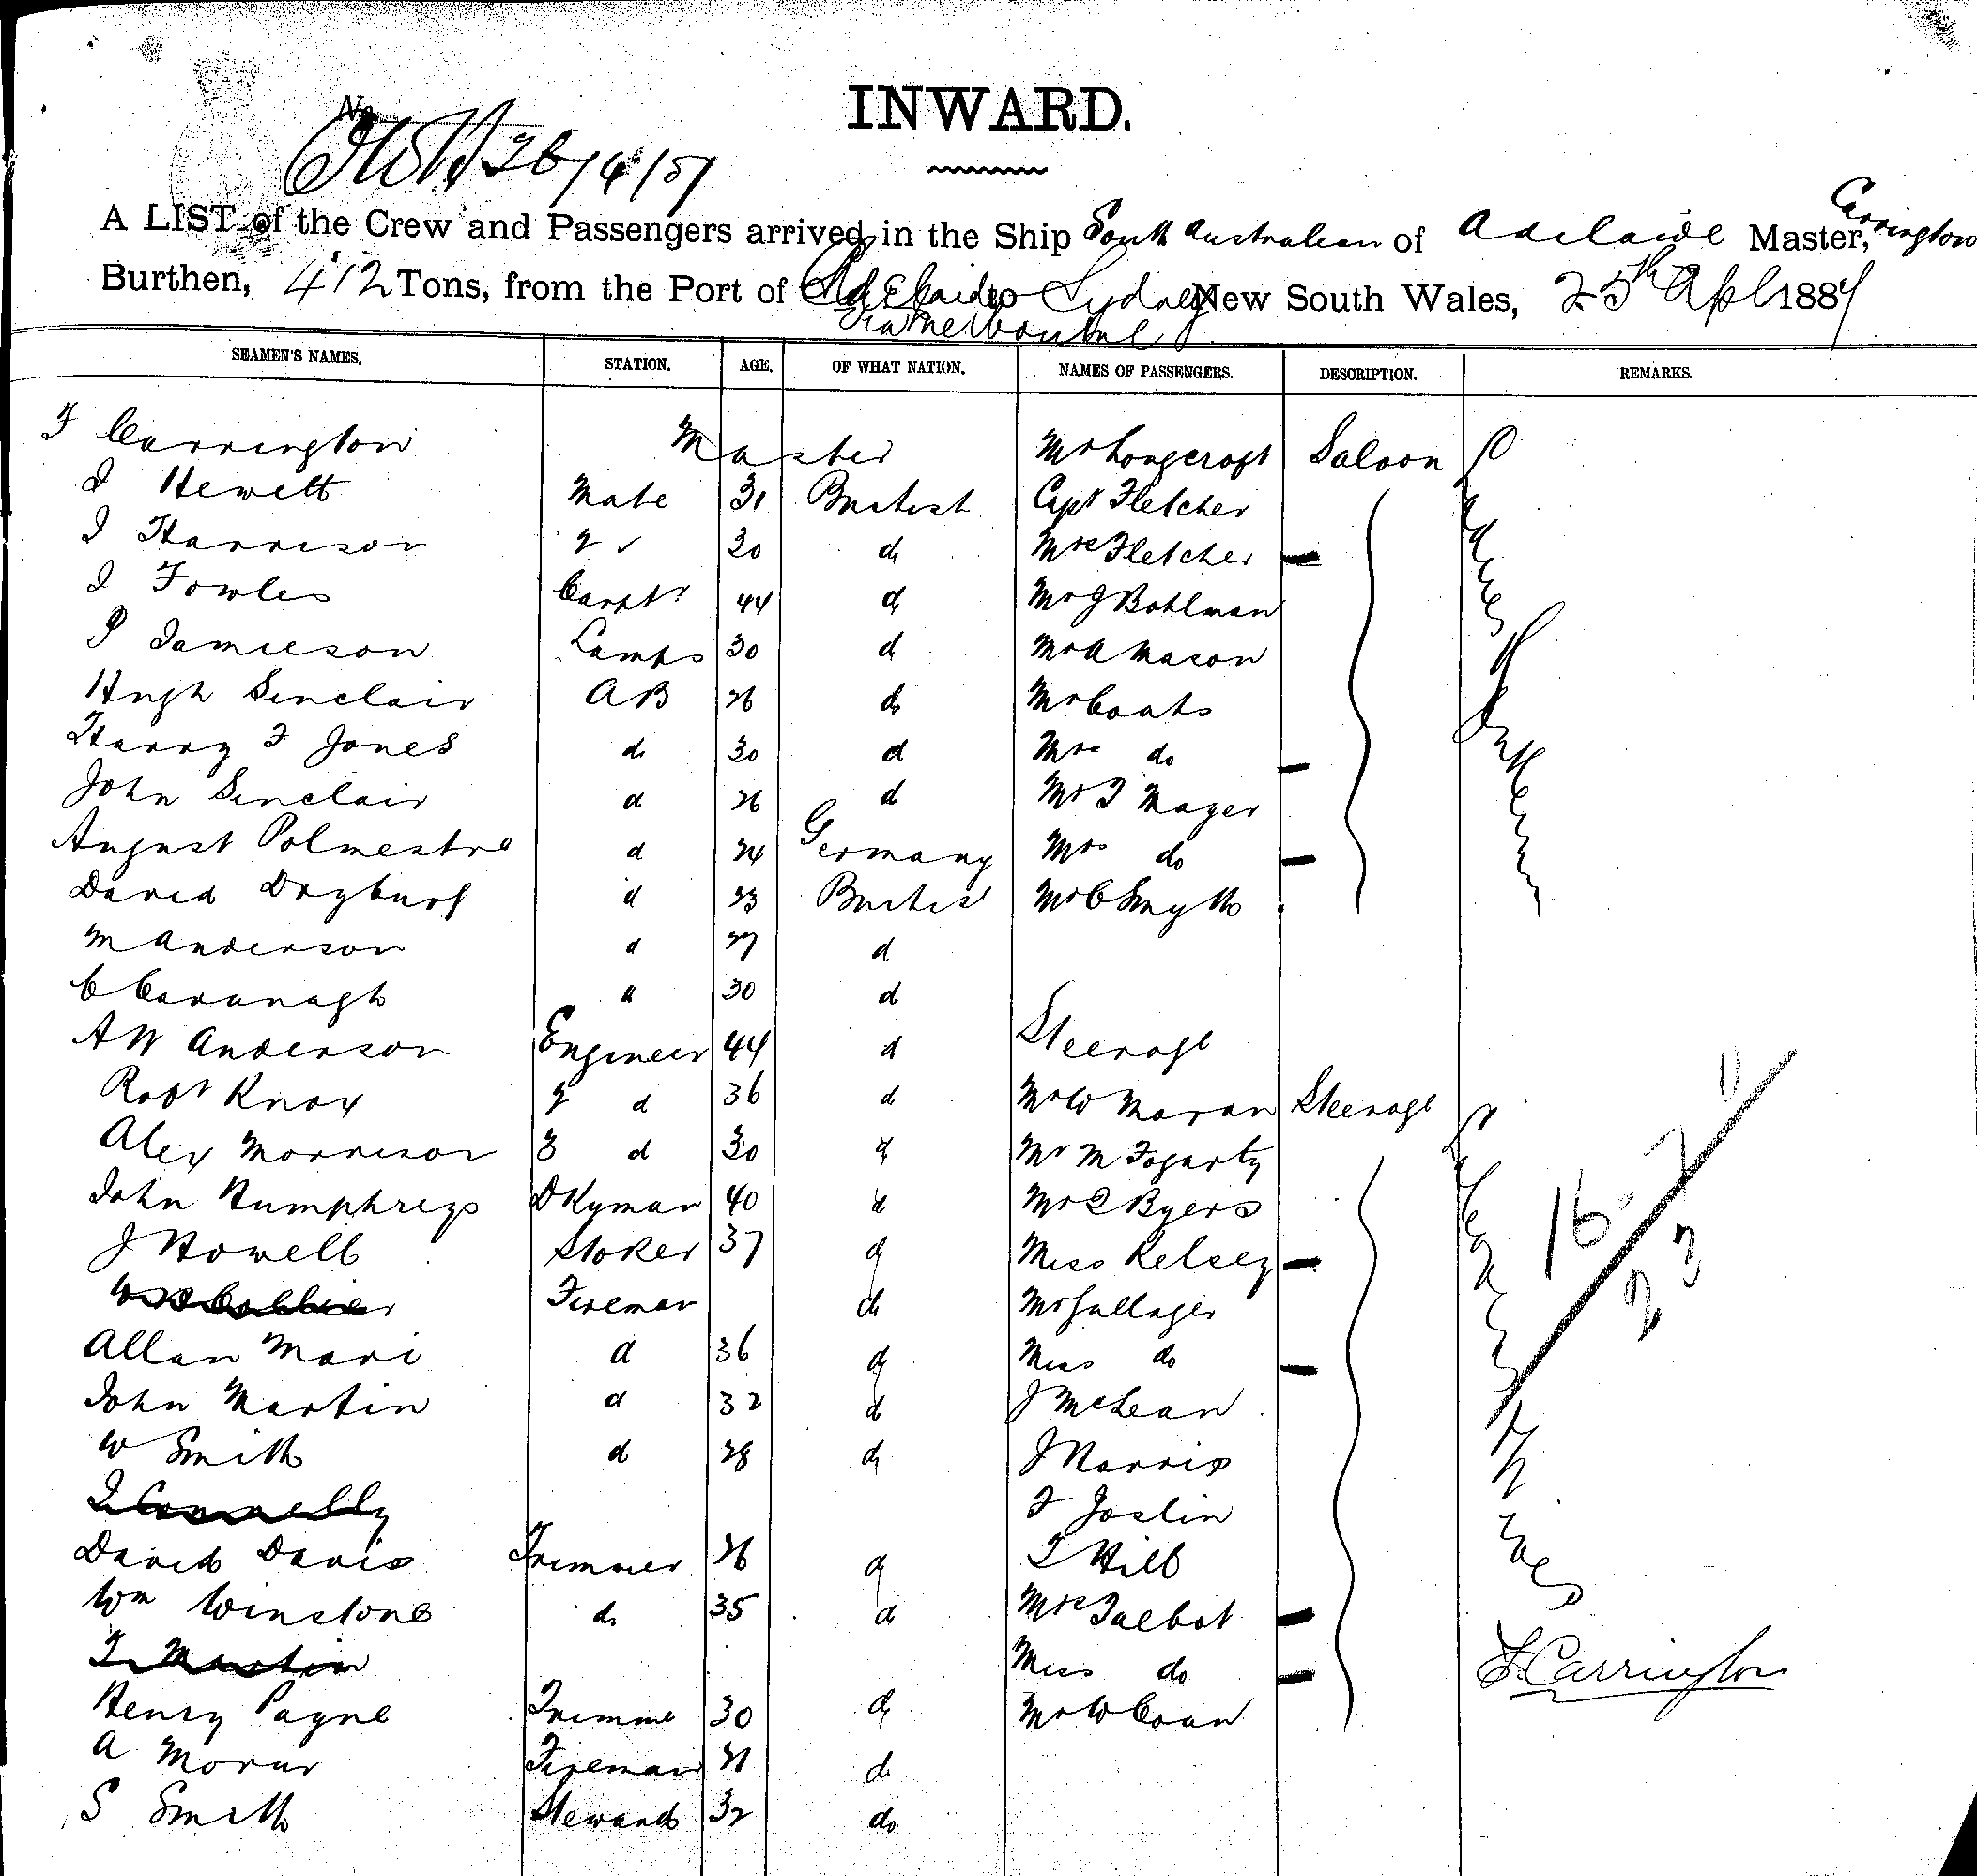 INWARD.
No. 26/4/87
A LIST of the Crew and Passengers arrived in the Ship South Australian of Adelaide Master, Carrington
Burthen, 412 Tons, from the Port of Adelaide to Sydney New South Wales, 25th Apl 1887
Via Melbourne
SEAMEN'S NAMES. STATION. AGE. OF WHAT NATION. NAMES OF PASSENGERS. DESCRIPTION. REMARKS.
F Carrington Master Mr Longcroft Saloon
J Hewett Mate 31 British Capt Fletcher
J Harrison 2 30 do Mrs Fletcher
J Fowles Carptr 44 do Mr J Bohlman
P Jamieson Lamps 30 d Mr A Mason
Hugh Sinclair AB 26 do Mr Coats
Harry F Jones do 30 d Mrs do
John Sinclair d 26 d Mr T Mayer
August Polmestre d 24 Germany Mrs do
David Dryburg d 23 British Mr C Smyth
M Anderson d 27 d
C Cavanagh d 30 d
A W Anderson Engineer 44 d Steerage
Robt Knox 2 d 36 d Mr W Moran Steerage
Alex Morrison 3 d 30 d Mr M Fogarty
John Humphreys Dkyman 40 d Mr Byers
J Howell Stoker 37 d Miss Kelsey
Collier Fireman do Mr Gallager
Allan d 36 d Miss do
John Martin d 32 d J McLean
W Smith d 28 d J Norris
J Connelly F Joslin
David Davis Trimmer 26 d T Hill
Wm Winstone do 35 d Mrs Talbot
T Martin Miss do
Henry Payne Trimme 30 d Mr W Coan
A Moran Fireman 21 do
S Smith Steward 32 do
16 7
23
F. Carrington